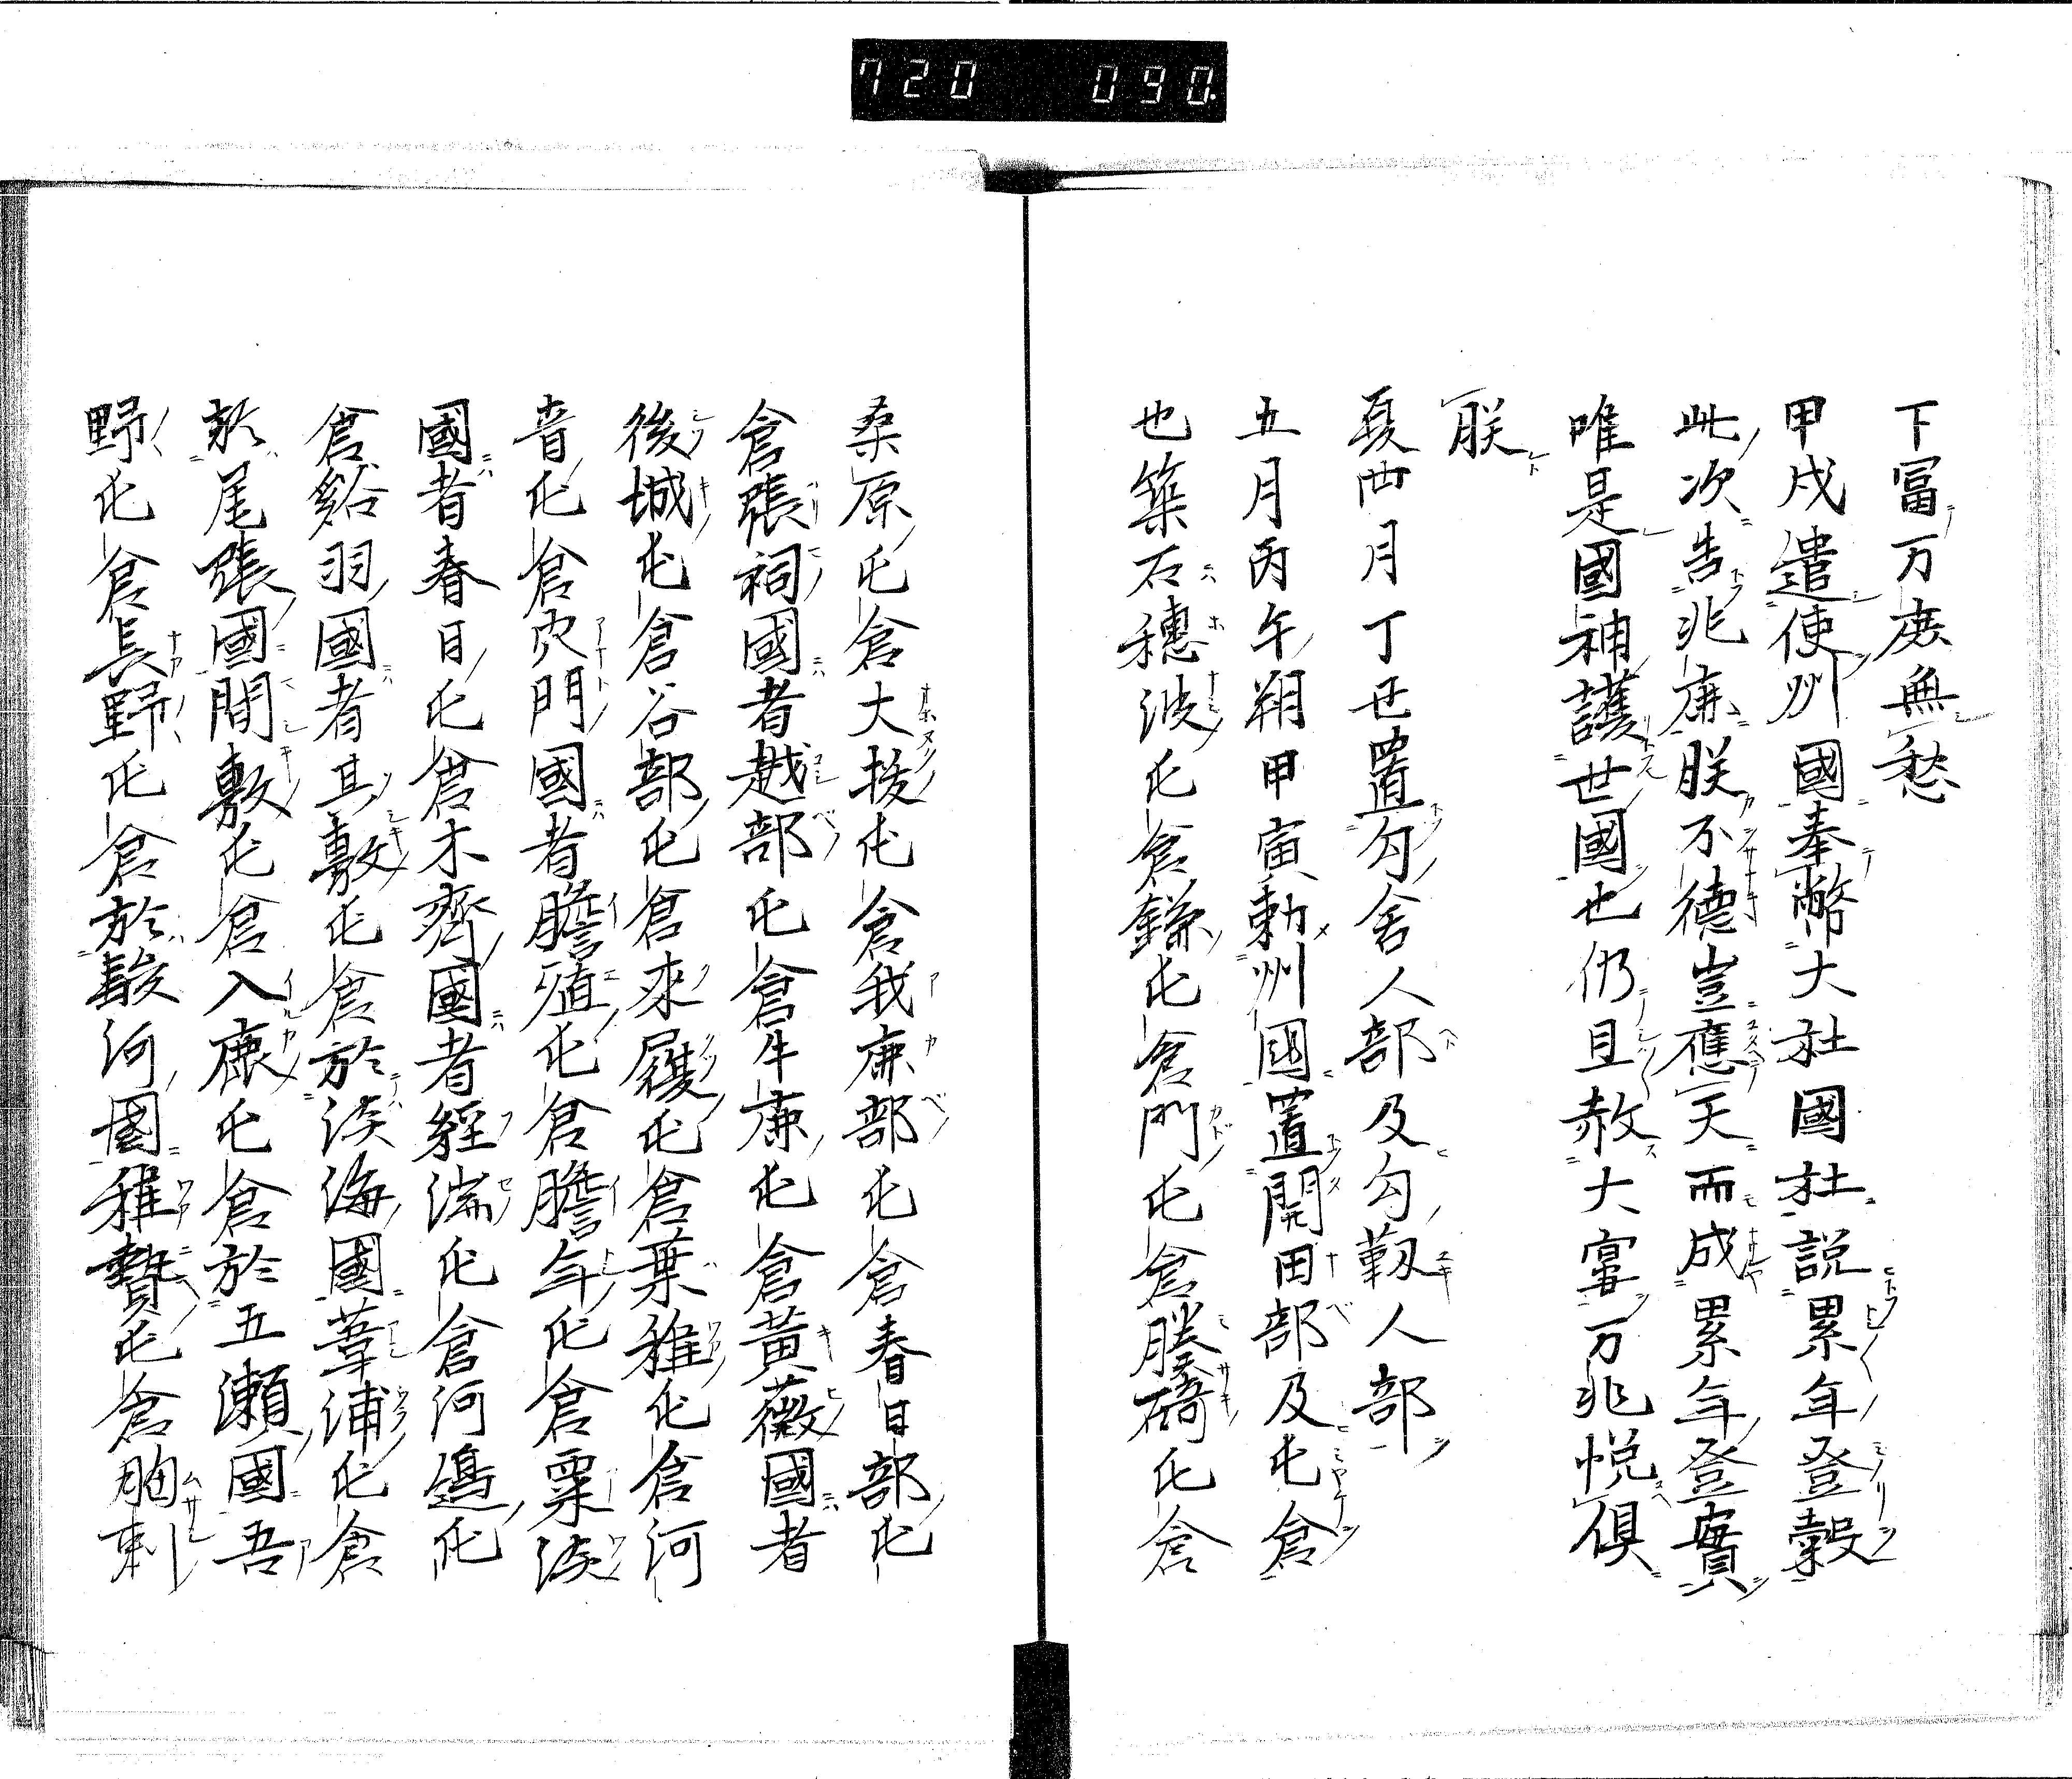 720 090
下冨万庶無愁
甲戌遣使州國奉幣大社國社説累年登穀
此次告兆庶朕不德豈應天而成累年登實
唯是國神護世國也仍且赦大寡万兆悦俱
朕
夏四月丁丑置勾舍人部及勾靱人部
五月丙午朔甲寅勅州國置開田部及屯倉
也築石穗波屯倉鎌屯倉門屯倉騰碕屯倉
桑原屯倉大拔屯倉我鹿部屯倉春日部屯
倉張祠國者越部屯倉牛鹿屯倉黃薇國者
後城屯倉谷部屯倉來履屯倉葉稚屯倉河
音屯倉穴門國者膽殖屯倉膽年屯倉粟淡
國者春日屯倉木齊國者經湍屯倉河邊屯
倉谿羽國者其敷屯倉於淡海國葦浦屯倉
於尾張國間敷屯倉入鹿屯倉於五瀬國吾
野屯倉長野屯倉於駿河國稚贄屯倉胸刺